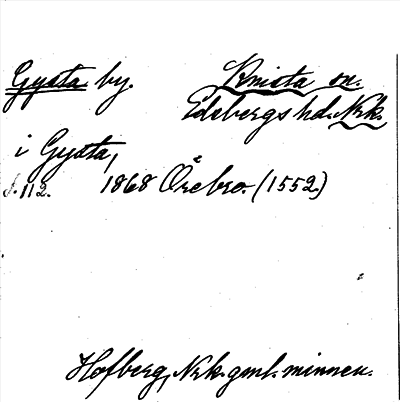 Gysta by. Knista sn.
Edsbergs hd. Nrk.
i Gysta,
s. 112. 1868 Örebro. (1552.)
Hofberg, Nrk. gml. minnen.